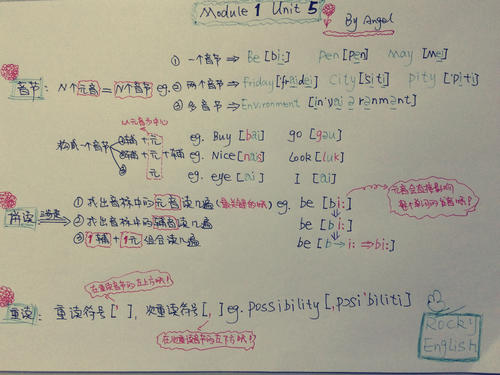 Module 1 Unit 5
By Angel
① 一个音节 ⇒ Be [bi:] pen [pen] May [mei]
音节: N个元音 = N个音节 eg. ② 两个音节 ⇒ Friday [fraidei] City [siti] pity ['piti]
③ 多音节 ⇒ Environment [in'vaiərənmənt]
以元音为中心
构成一个音节
①辅+元 eg. Buy [bai] go [gəu]
②辅+元+辅 eg. Nice [nais] Look [luk]
③ 元 eg. eye [ai] I [ai]
元音会直接影响
整个单词的发音哦!
拼读
① 找出音标中的元音读几遍 (最关键的哦) eg. be [bi:]
② 找出音标中的辅音读几遍 be [bi:]
③ 1辅+1元 组合读几遍 be [b→i: ⇒bi:]
在重读音节的左上方哦!
重读: 重读符号['], 次重读符号[,] eg. possibility [,pɔsi'biliti]
在次重读音节的左下方哦!
Rocky
English